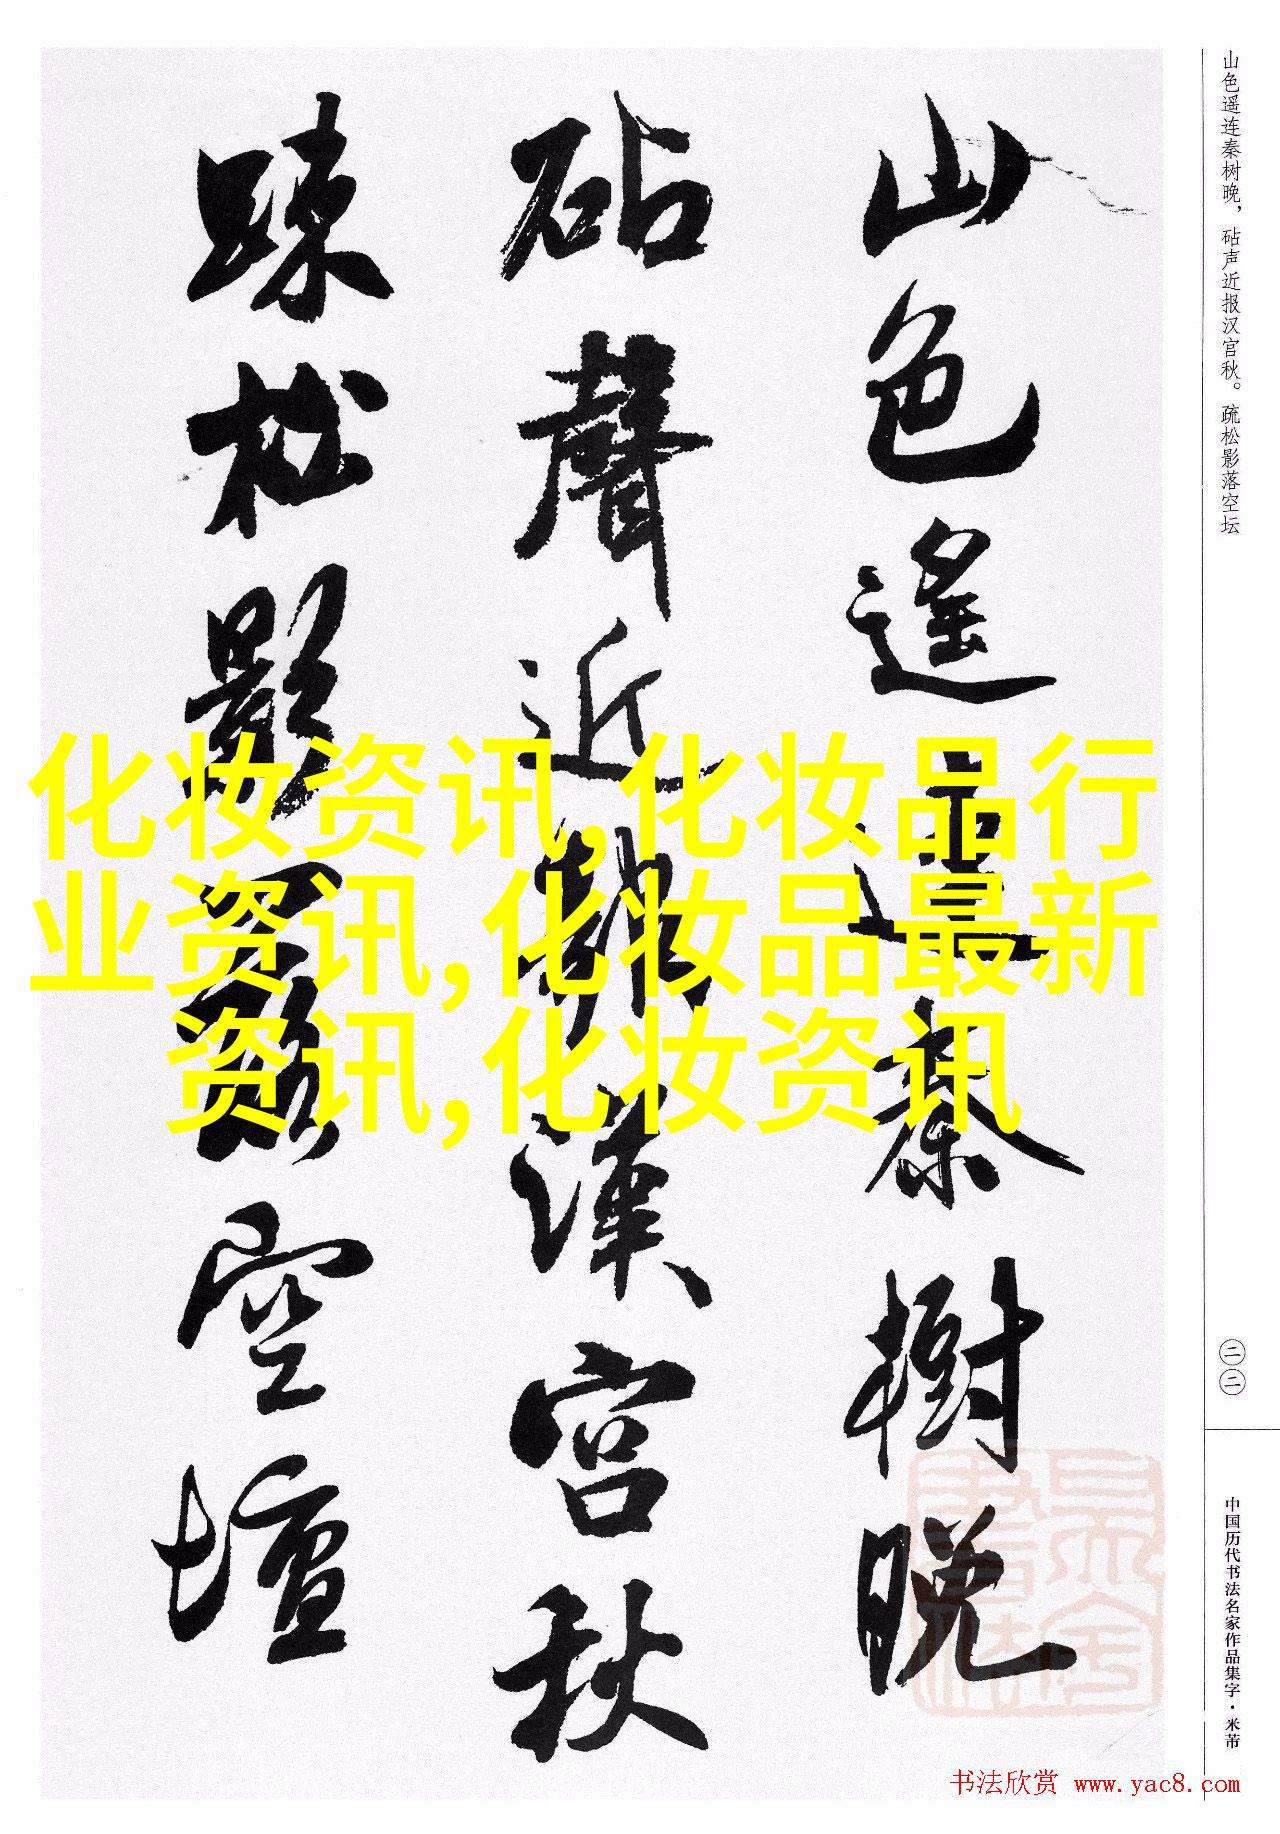 山色遥连秦树晚，砧声近报汉宫秋。疏松影落空坛
山色遙連秦樹晚
砧聲近報漢宮秋
疎松影落空壇
化妆资讯,化妆品行
业资讯,化妆品最新
资讯,化妆资讯
二二
中国历代书法名家作品集字·米芾
书法欣赏 www.yac8.com